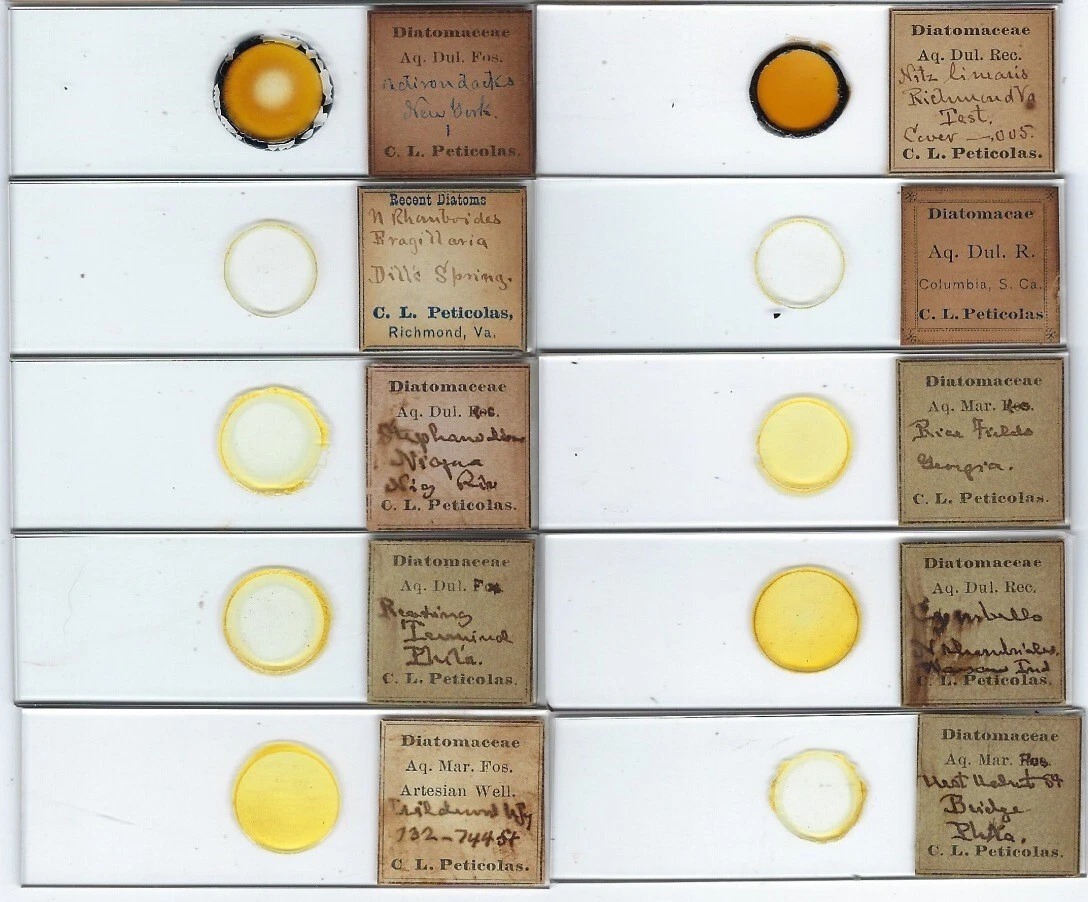 Diatomaceae
Aq. Dul. Fos.
Adirondacks
New York.
1
C. L. Peticolas.
Diatomaceae
Aq. Dul. Rec.
Nitz linearis
Richmond Va
Test.
Cover — .005.
C. L. Peticolas.
Recent Diatoms
N Rhomboides
Fragillaria
Dill's Spring.
C. L. Peticolas,
Richmond, Va.
Diatomacae
Aq. Dul. R.
Columbia, S. Ca.
C. L. Peticolas
Diatomaceae
Aq. Dul. Rec.
Niagra
C. L. Peticolas.
Diatomaceae
Aq. Mar.
Rice Fields
Georgia.
C. L. Peticolas.
Diatomaceae
Aq. Dul. Fos
Reading
Terminal
Phila.
C. L. Peticolas.
Diatomaceae
Aq. Dul. Rec.
Cymbella
Ind
C. L. Peticolas.
Diatomaceae
Aq. Mar. Fos.
Artesian Well.
C. L. Peticolas.
Diatomaceae
Aq. Mar.
West Walnut St
Bridge
Phila.
C. L. Peticolas.